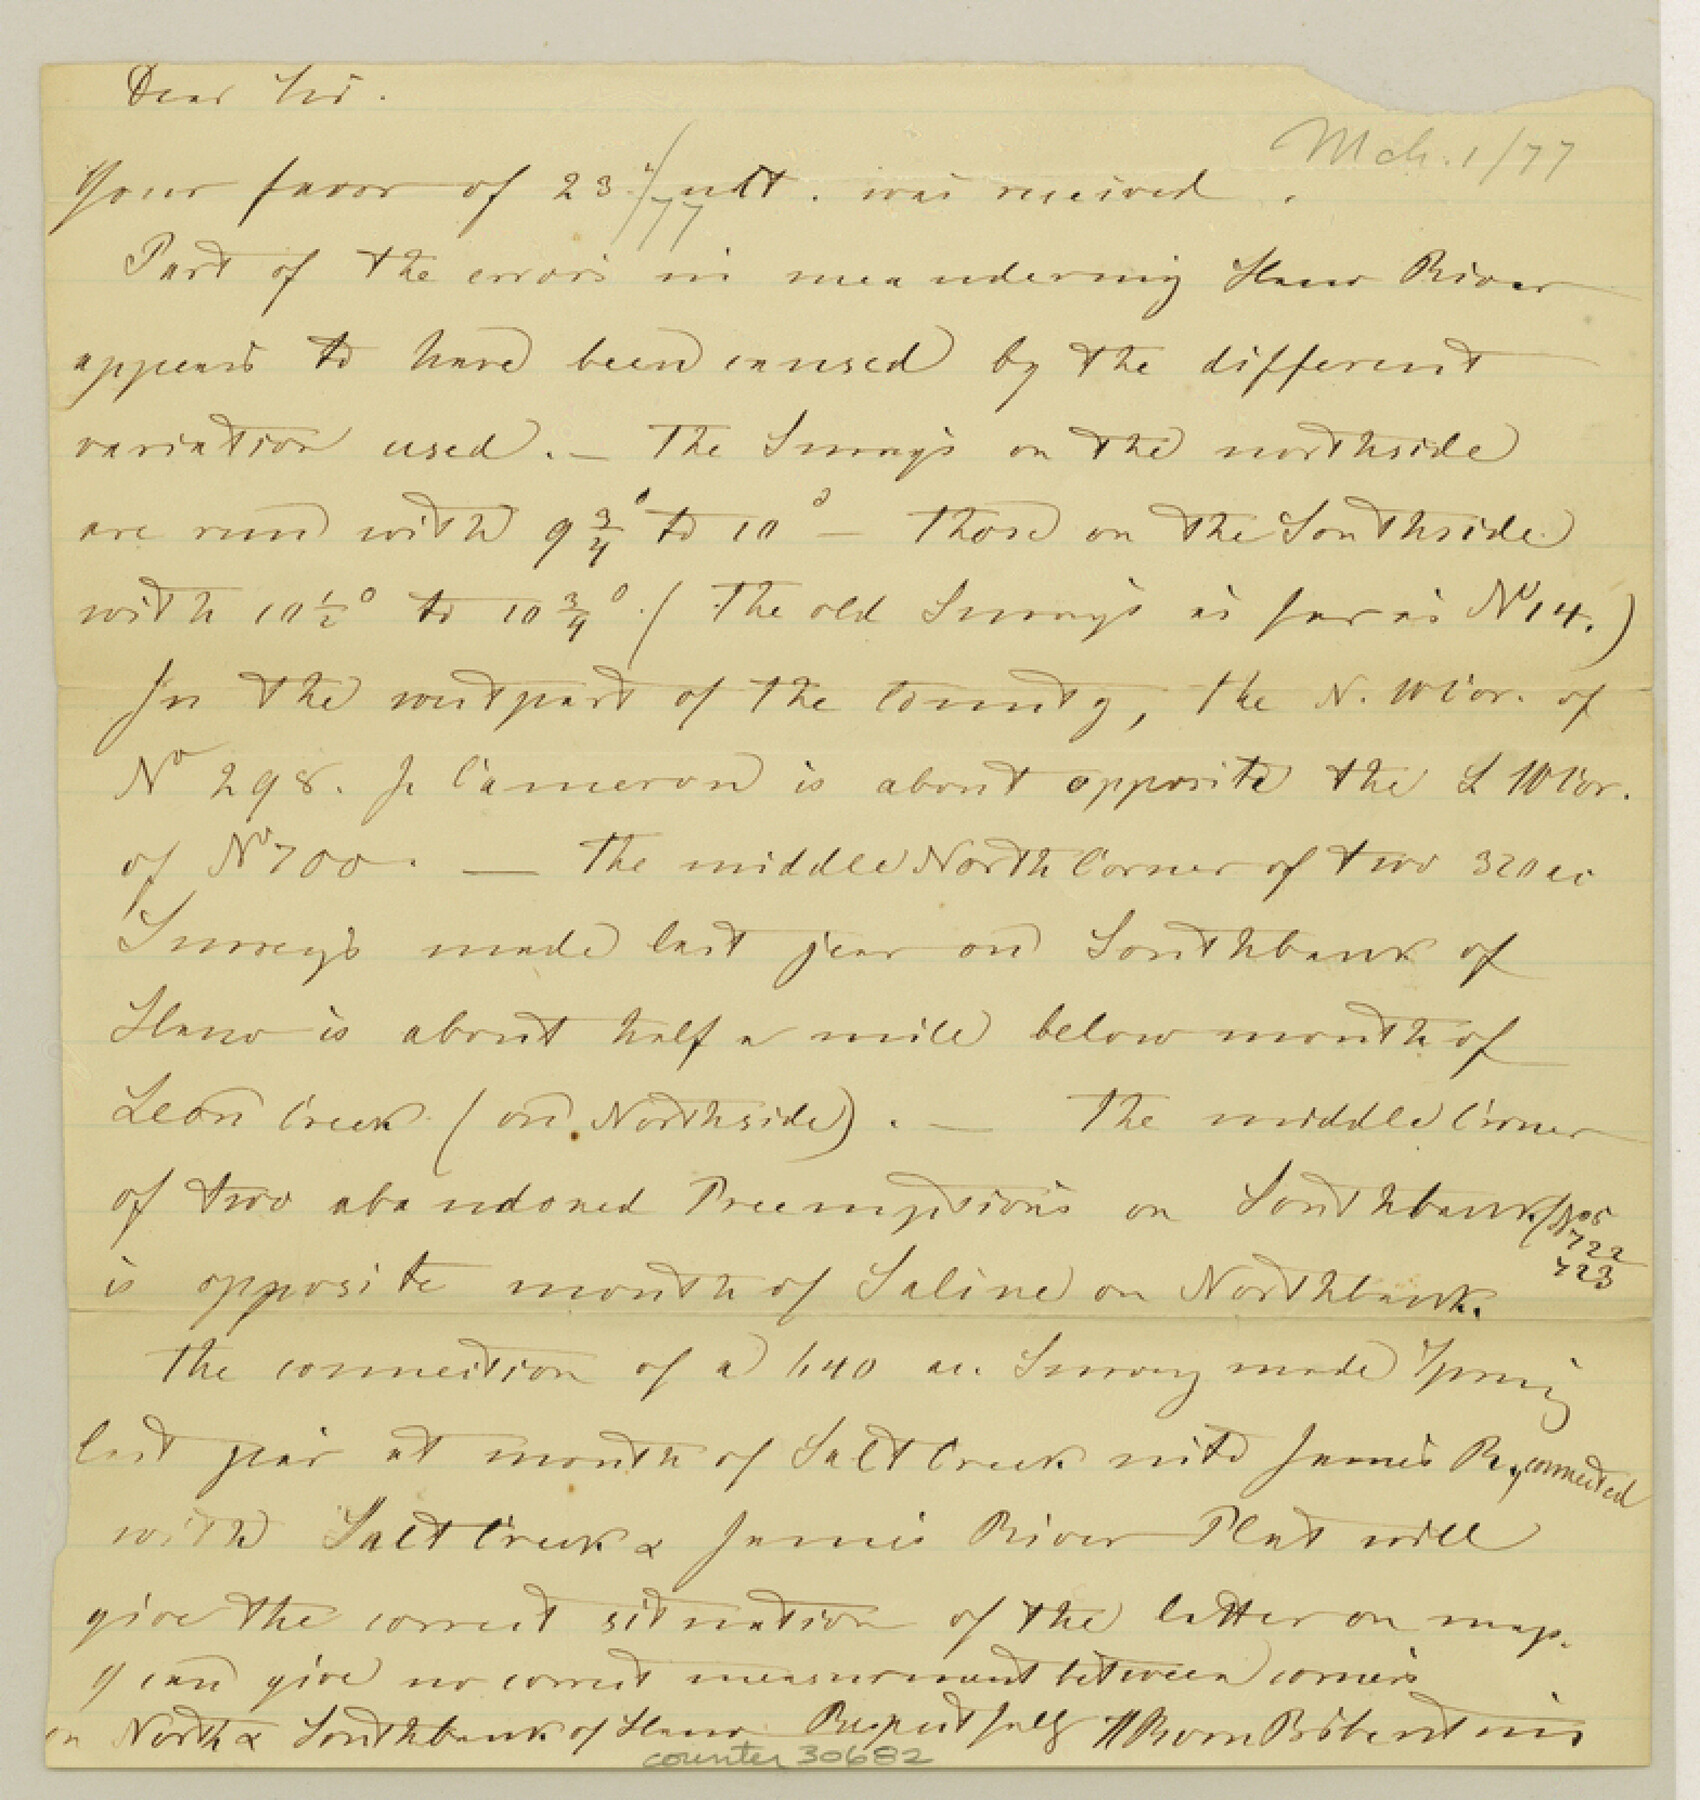 Dear Sir.
Mch. 1/77
Your favor of 23d/77 ult. was received.
Part of the errors in meandering Llano River
appears to have been caused by the different
variation used. — The Surveys on the northside
are run with 9 3/4° to 10° — those on the Southside
with 10 1/2° to 10 3/4°. (The old Surveys as far as No 14.)
In the westpart of the County, the N. W Cor. of
No 298. J. Cameron is about opposite the S W Cor.
of No 700. — The middle North Corner of two 320 ac
Surveys made last year on Southbank of
Llano is about half a mile below mouth of
Leon Creek (on Northside). — The middle Corner
of two abandoned Preemptions on Southbank (Nos
722
723
is opposite mouth of Saline on Northbank.
The connection of a 640 ac. Survey made Spring
last year at mouth of Salt Creek into James R., connected
with Salt Creek & James River Plat will
give the correct situation of the latter on map.
I can give no correct measurement between corners
on North & Southbank of Llano Respectfully
counter 30682